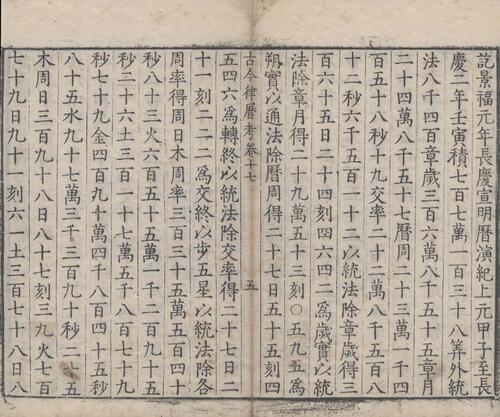 訖景福元年長慶宣明曆演紀上元甲子至長
慶二年壬寅積七百七萬一百三十八筭外統
法八千四百章歲三百六萬八千五十五章月
二十四萬八千五十七曆周二十三萬一千四
百五十八秒十九交率二十二萬八千五百八
十二秒六千五百一十二以統法除章歲得三
百六十五日二十四刻四六四二爲歲實以統
法除章月得二十九萬五十三刻〇五九五爲
朔實以通法除曆周得二十七日五十五刻四
古今律曆考卷十七 五
五四六爲轉終以統法除交率得二十七日二
十一刻二二二爲交終以步五星以統法除各
周率得周日木周率三百三十五萬五百四十
秒八十三火六百五十五萬一千二百九十五
秒二十六土三百一十七萬五千八百七十九
秒七十九金四百九十萬四千八百四十五秒
八十五水九十七萬三千三百九十秒二十五
木周日三百九十八日八十七刻三九火七百
七十九日九十一刻六一土三百七十八日八